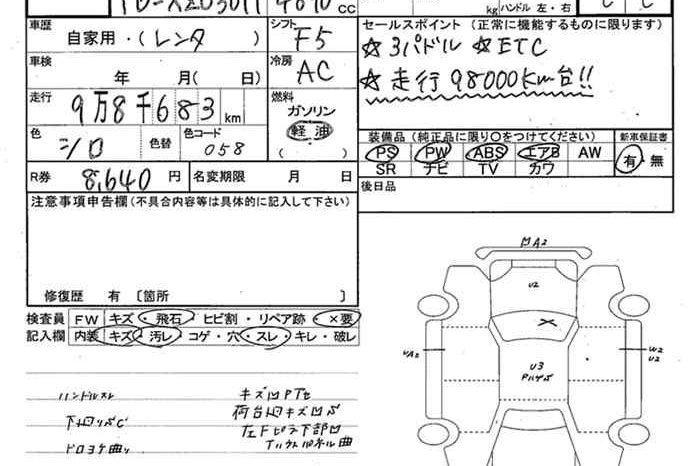 TD-XZU301H 4890 CC
kg ハンドル 左・右
車歴
自家用・(レンタ )
シフト
F5
セールスポイント (正常に機能するものに限ります)
☆3パドル ☆ETC
車検
年 月 ( 日)
冷房
AC
☆走行98000Km台!!
走行
9万8千683 km
燃料
ガソリン
軽油
( )
色
シロ
色替
色コード
058
装備品 (純正品に限り○をつけてください)
新車保証書
PS PW ABS エアB AW
SR ナビ TV カワ
有・無
R券 8,640 円
名変期限 月 日
後日品
注意事項申告欄(不具合内容等は具体的に記入して下さい)
修復歴 有 〔箇所 〕
検査員
記入欄
FW キズ・飛石・ヒビ割・リペア跡・×要
内装 キズ・汚レ・コゲ・穴・スレ・キレ・破レ
凹A2
U2
UA2
U3
W2
U2
ハンドルスレ
キズ凹
下回りサビ
荷台内キズ凹
ドロヨケ曲り
左Fピラ下部凹